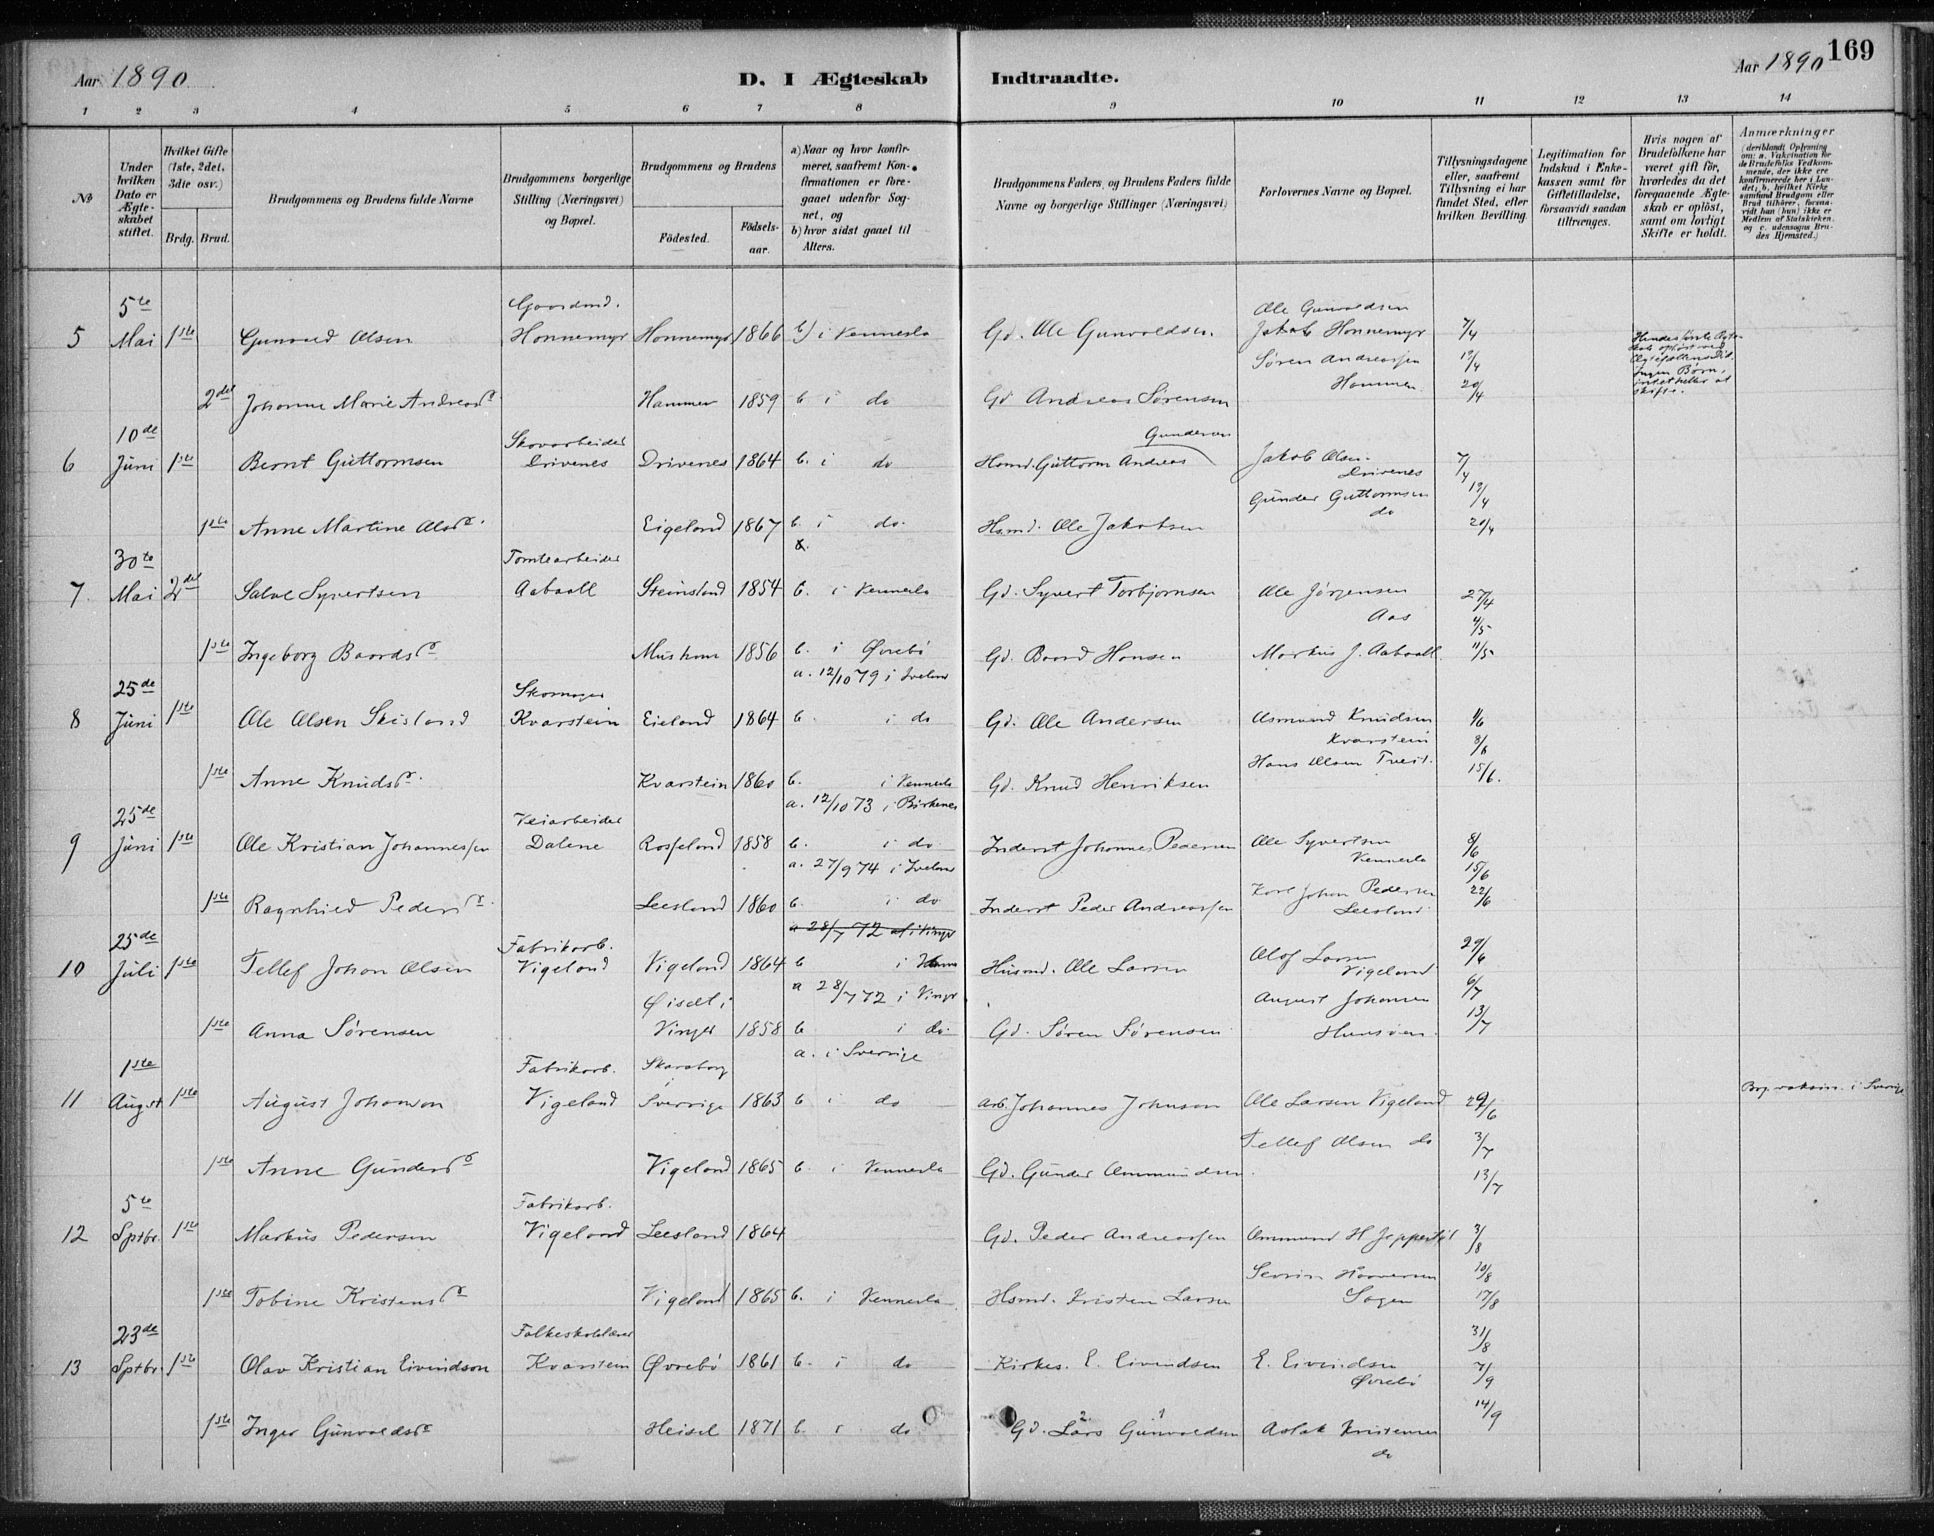 169
Aar 1890
D. I Ægteskab Indtraadte.
Aar 1890
1 2 3 4 5 6 7 8 9 10 11 12 13 14
№
Under hvilken Dato er Ægteskabet stiftet.
Hvilket Gifte (1ste, 2det, 3die osv.)
Brdg. Brud.
Brudgommens og Brudens fulde Navne
Brudgommens borgerlige Stilling (Næringsvei) og Bopæl.
Brudgommens og Brudens
Fødested.
Fødselsaar.
a) Naar og hvor konfirmeret, saafremt Konfirmationen er foregaaet udenfor Sognet, og
b) hvor sidst gaaet til Alters.
Brudgommens Faders, og Brudens Faders fulde Navne og borgerlige Stillinger (Næringsvei)
Forlovernes Navne og Bopæl.
Tillysningsdagene eller, saafremt Tillysning ei har fundet Sted, efter hvilken Bevilling.
Legitimation for Indskud i Enkekassen samt for Giftetilladelse, forsaavidt saadan tiltrænges.
Hvis nogen af Brudefolkene har været gift før, hvorledes da det foregaaende Ægteskab er opløst, samt om lovligt Skifte er holdt.
Anmærkninger (deriblandt Oplysning om: a. Vakcination for de Brudefolks Vedkommende, der ikke ere konfirmerede her i Landet; b. hvilket Kirkesamfund Brudgom eller Brud tilhører, forsaavidt han (hun) ikke er Medlem af Statskirken, og c. udensogns Brudes Hjemsted.)
5te Gaardmd. Ole Gunvaldsen
5 Mai 1ste Gunvald Olsen Honnemyr Honnemyr 1866 b) i Vennesla Gd. Ole Gunvaldsen. Jakob Honnemyr 7/4
Søren Andreassen 13/4
Hammen 20/4
2det Johanne Marie Andreasdr Hammer 1859 b i do Gd Andreas Sørensen
10de Skovarbeider Gundersen
6 Juni 1ste Bernt Guttormsen Drivenes Drivenes 1864 b. i do Hsmd. Guttorm Andreas Jakob Olsen Drivenes 7/4
Gunder Guttormsen do 13/4
1ste Anne Martine Olsdr. Eigeland 1867 b. i do. Hsmd. Ole Jakobsen 20/4
30te Tomtearbeider
7. Mai 2det Salve Syvertsen Aabaall Steinsland 1854 b. i Vennesla Gd. Syvert Torbjørnsen Ole Jørgensen Aas 27/4
4/5
1ste Ingeborg Baardsdr Muskom 1856 b. i Øvrebø Gd. Baard Hansen Markus J. Aabaall 11/5
25de Skomager a. 12/10 79 i Iveland
8 Juni 1ste Ole Olsen Skisland Kvarstein Eieland 1864 b. i do Gd. Ole Andersen Asmund Knudsen Kvarstein 1/6
8/6
Hans Olsen Tveit. 15/6.
1ste Anne Knudsdr. Kvarstein 1860 b. i Vennesla Gd. Knud Henriksen
25de Veiarbeider a. 12/10 73 i Birkenes
9 Juni 1ste Ole Kristian Johannessen Dalene Rosseland 1858 b. i do. Inderst Johannes Pedersen Ole Syvertsen Vennesla 8/6
a. 27/9 74 i Iveland 15/6
1ste Ragnhild Pedersdr. Leesland 1860 b. i do Inderst Peder Andreassen Karl Johan Pedersen Leesland 22/6
25de Fabrikarb.
10 Juli 1ste Tellef Johan Olsen Vigeland Vigeland 1864 b i Husmd. Ole Larsen Olof Larsen Vigeland 29/6
Øiset i a 28/7 72 i Vinger August Johansen 6/7
1ste Anna Sørensen Vinger 1858 b i do. Gd. Søren Sørensen Hunsøen. 13/7
1ste Fabrikarb. Skaraborg a. i Sverrige
11 August 1ste August Johanson Vigeland i Sverrige 1863 b i do Arb. Johannes Johnson Ole Larsen Vigeland 29/6 Brg. vaksin. i Sverrige
Tellef Olsen do 3/7
1ste Anne Gundersdr Vigeland 1865 b. i Vennesla Gd. Gunder Ommundsen. 13/7
5te Fabrikarb.
12 Septbr. 1ste Markus Pedersen Vigeland Leesland 1864 Gd. Peder Andreassen Ommund H Jeppestøl 3/8
Sevrin Haaversen 10/8
1ste Tobine Kristensdr Vigeland 1865 b. i Vennesla Hsmd. Kristen Larsen 17/8
23de Folkeskolelærer 31/8
13 Septbr 1ste Olav Kristian Eivindson Kvarstein Øvrebø 1861 b. i do Kirkes. E. Eivindsen E. Eivindsen Øvrebø 7/9
2 1 14/9
1ste Inger Gunvaldsdr Heisel 1871 b. i do Gd. Lars Gunvaldsen Aslak Kristensen do